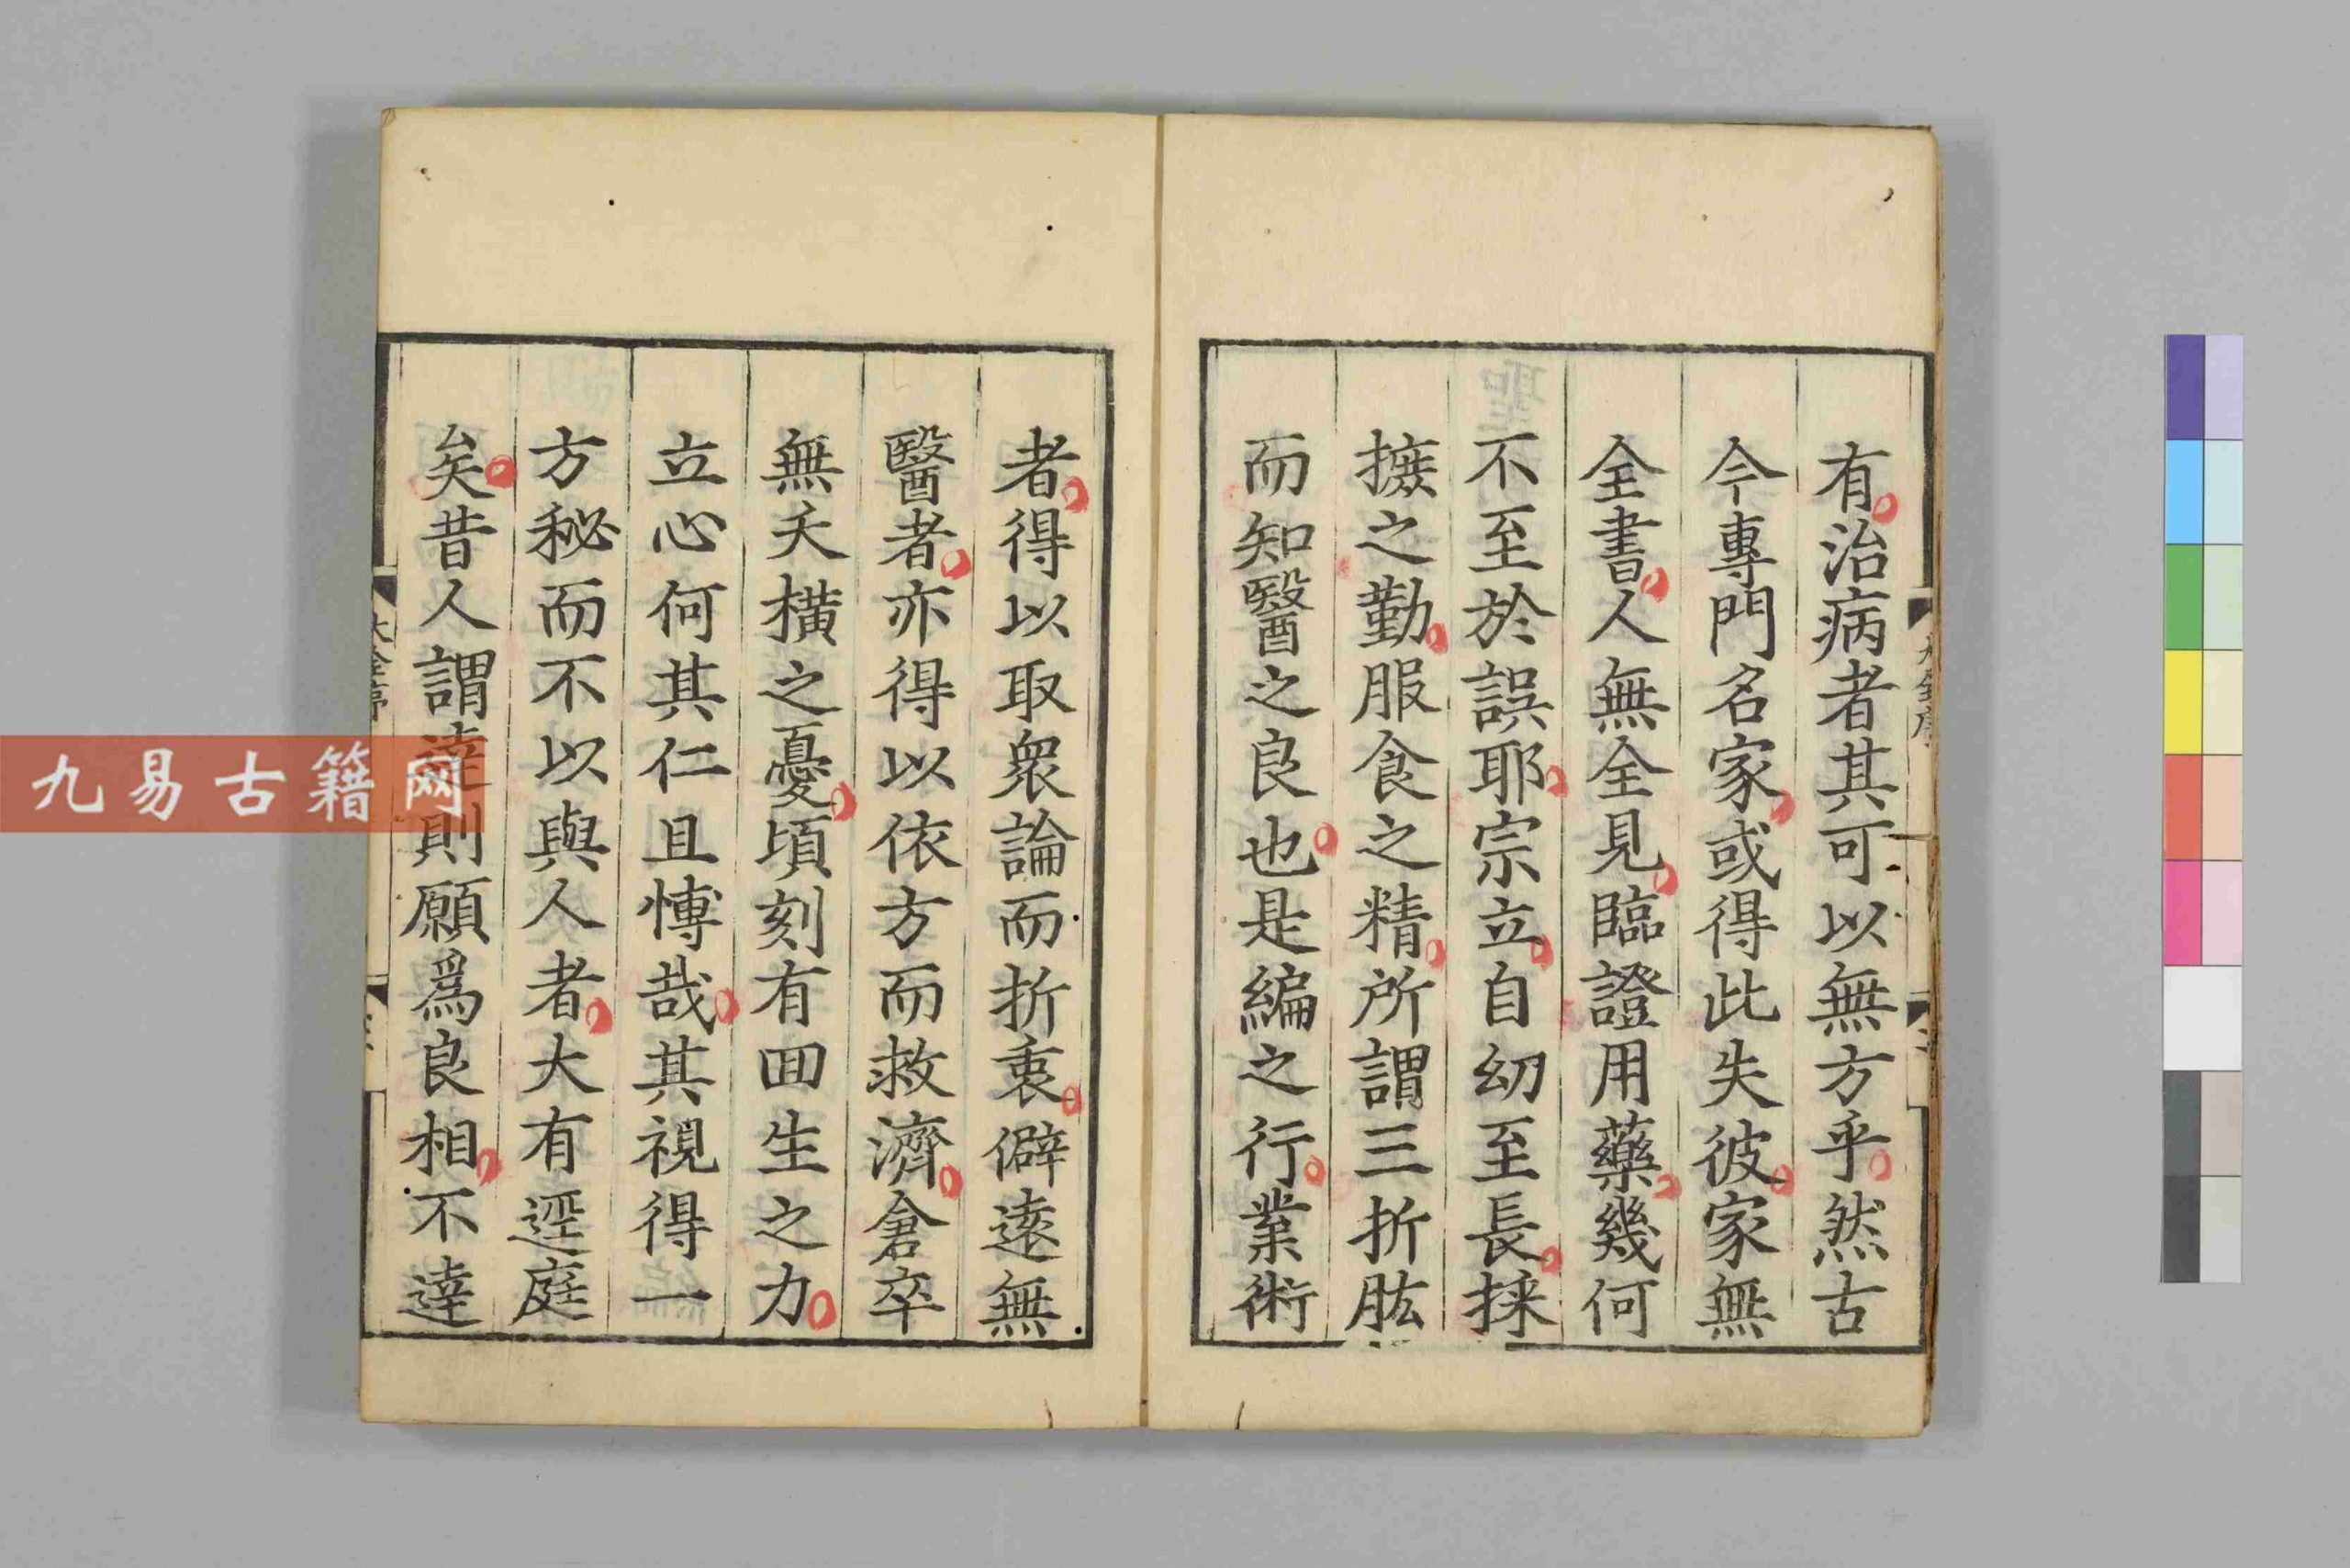 有治病者其可以無方乎然古
今專門名家或得此失彼家無
全書人無全見臨證用藥幾何
不至於誤耶宗立自幼至長採
摭之勤服食之精所謂三折肱
而知醫之良也是編之行業術
者得以取衆論而折衷僻遠無
醫者亦得以依方而救濟倉卒
無夭橫之憂頃刻有回生之力
立心何其仁且博哉其視得一
方秘而不以與人者大有逕庭
矣昔人謂達則願爲良相不達
九易古籍网